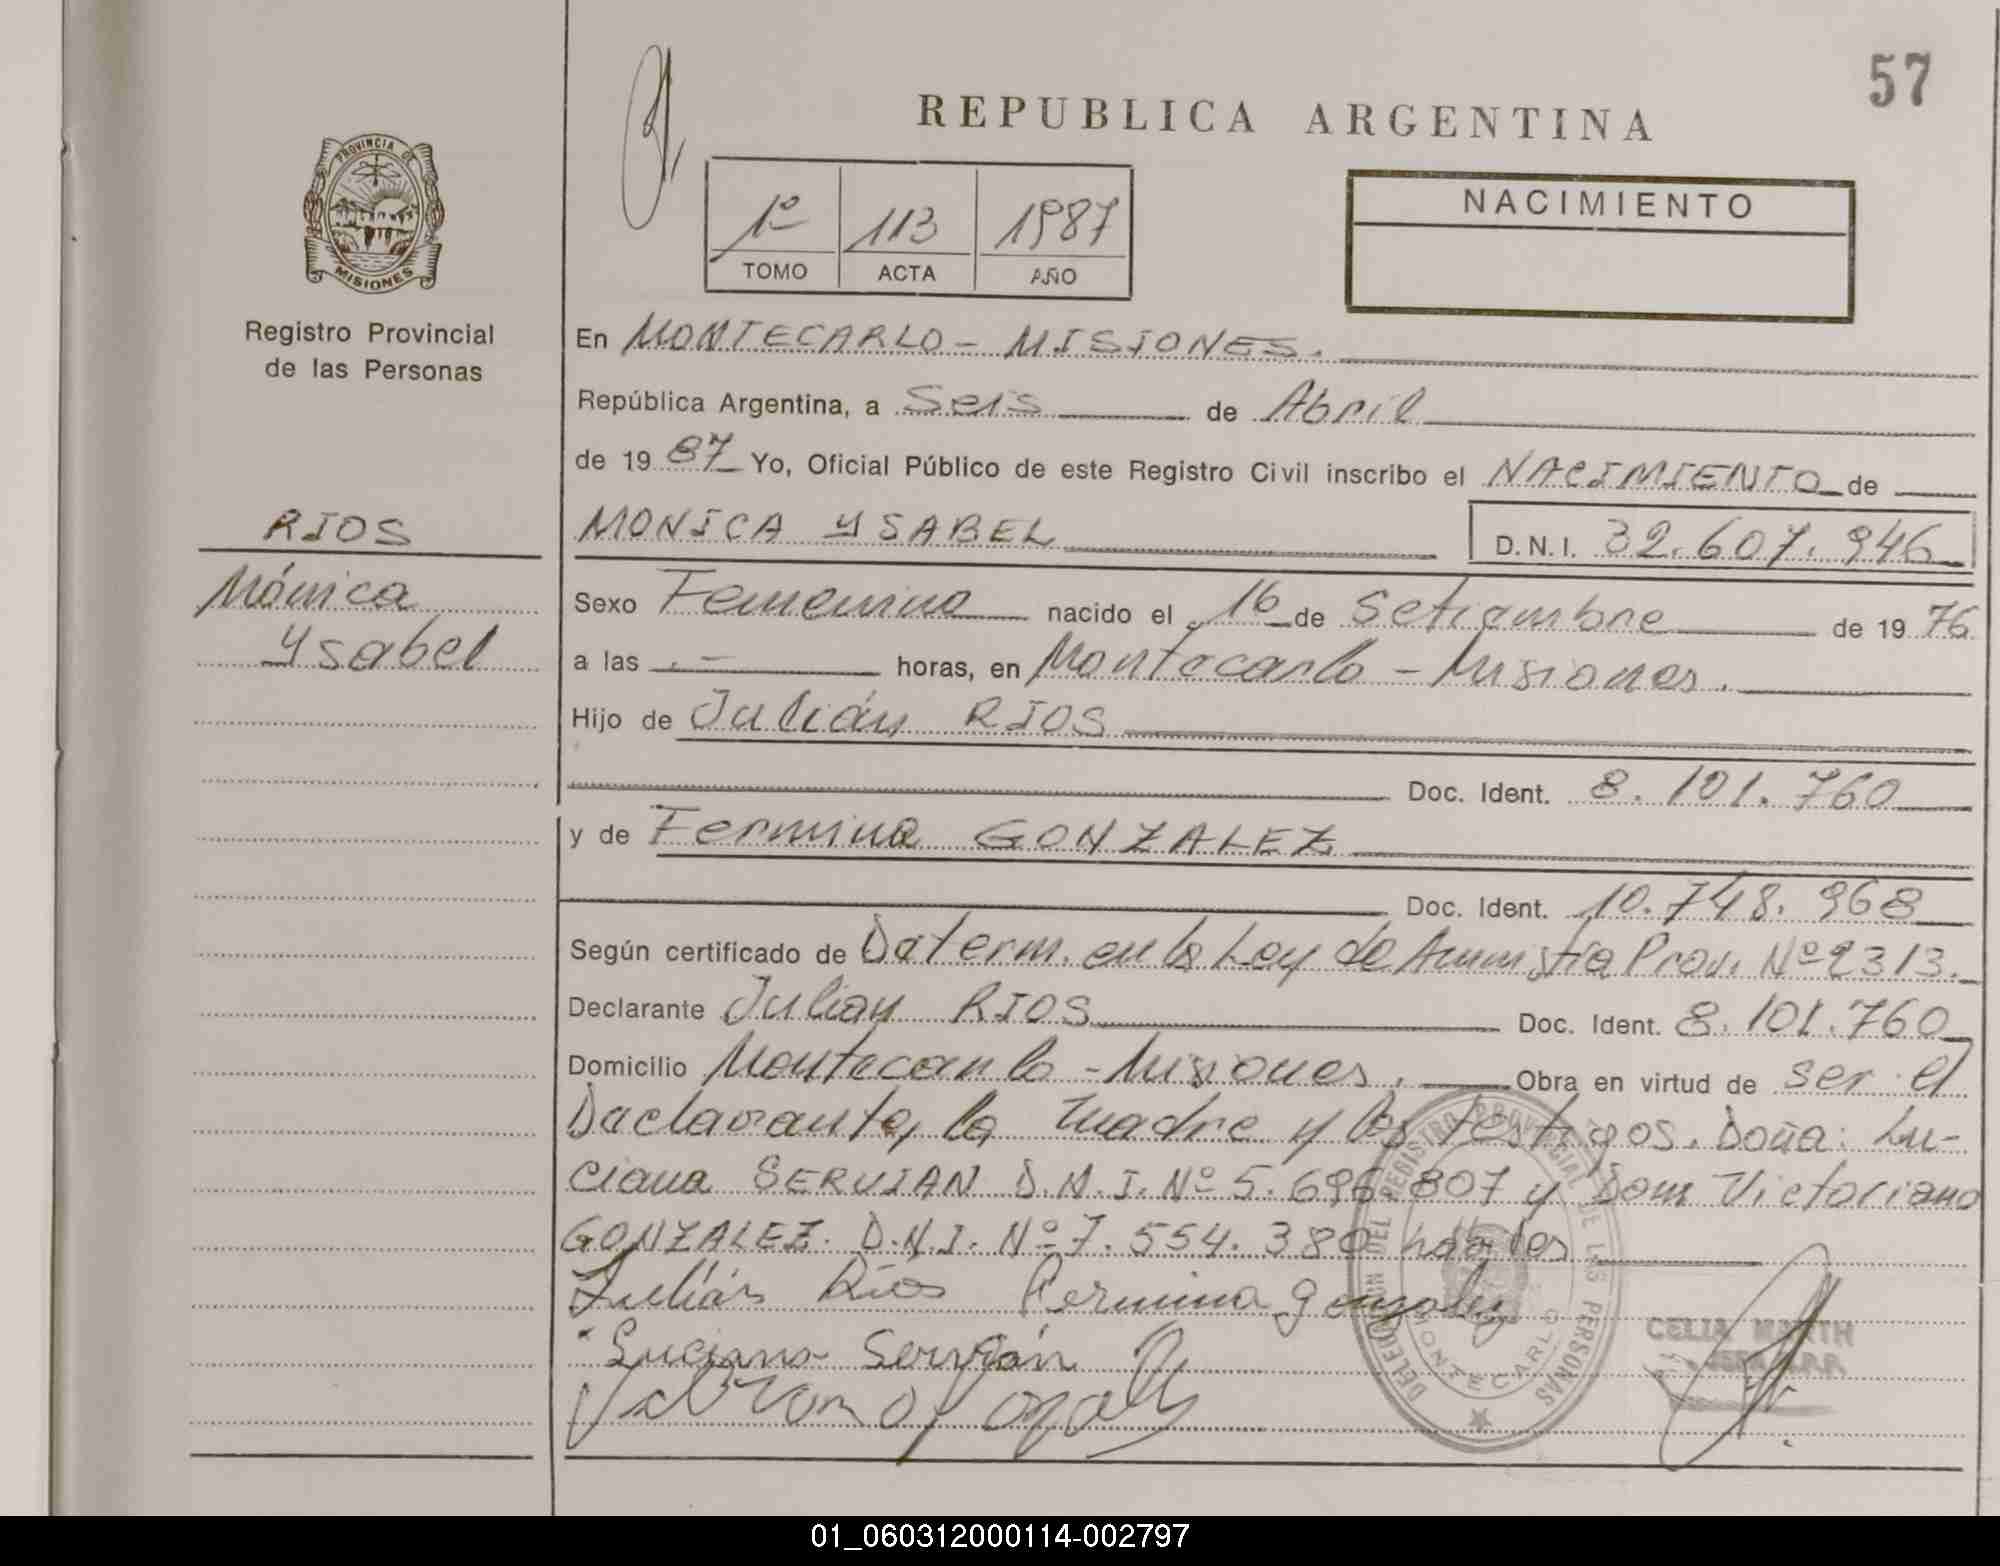 57
REPUBLICA ARGENTINA
PROVINCIA DE
MISIONES
1º 113 1987
TOMO ACTA AÑO
NACIMIENTO
Registro Provincial
de las Personas
En MONTECARLO - MISIONES.
República Argentina, a Seis de Abril
de 19 87 Yo, Oficial Público de este Registro Civil inscribo el NACIMIENTO de
RIOS
MONICA YSABEL D.N.I. 32.607.946
Mónica
Ysabel
Sexo Femenino nacido el 16 de Setiembre de 19 76
a las .- horas, en Montecarlo - Misiones.
Hijo de Julián RIOS
Doc. Ident. 8.101.760
y de Fermina GONZALEZ
Doc. Ident. 10.748.968
Según certificado de Determ. en la Ley de Amnistía Prov. Nº 2313.
Declarante Julian RIOS Doc. Ident. 8.101.760
Domicilio Montecarlo - Misiones. Obra en virtud de ser el
Declarante, la madre y los testigos. Doña: Lu-
ciana SERVIAN D.N.I. Nº 5.696.807 y Don Victoriano
GONZALEZ. D.N.I. Nº 7.554.380 hábiles
Julián Ríos Fermina gonzalez
Luciana Servián
DELEGACION DEL REGISTRO PROVINCIAL DE LAS PERSONAS
MONTECARLO
CELIA MARTH
01_060312000114-002797